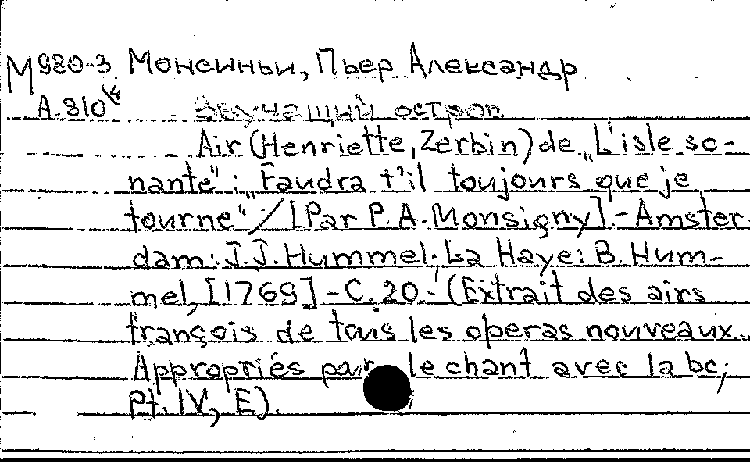 М980-3 Монсиньи, Пьер Александр
A.810
Звучащий остров
Air (Henriette, Zerbin) de „L'isle so-
nante": „Faudra t'il toujours que je
tourne" / [Par P. A. Monsigny]. - Amster-
dam: J. J. Hummel; La Haye: B. Hum-
mel, [1768] - C. 20. - (Extrait des airs
françois de tous les operas nouveaux..
Appropriés par le chant avec la bc;
Pt. IV, E).